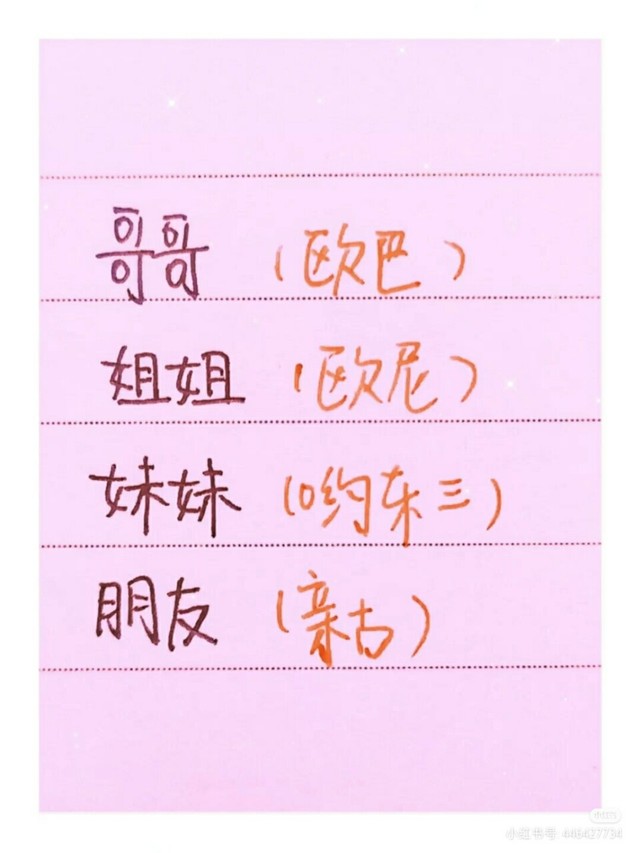 哥哥（欧巴）
姐姐（欧尼）
妹妹（哟东三）
朋友（亲古）
小红书
小红书号: 448427734